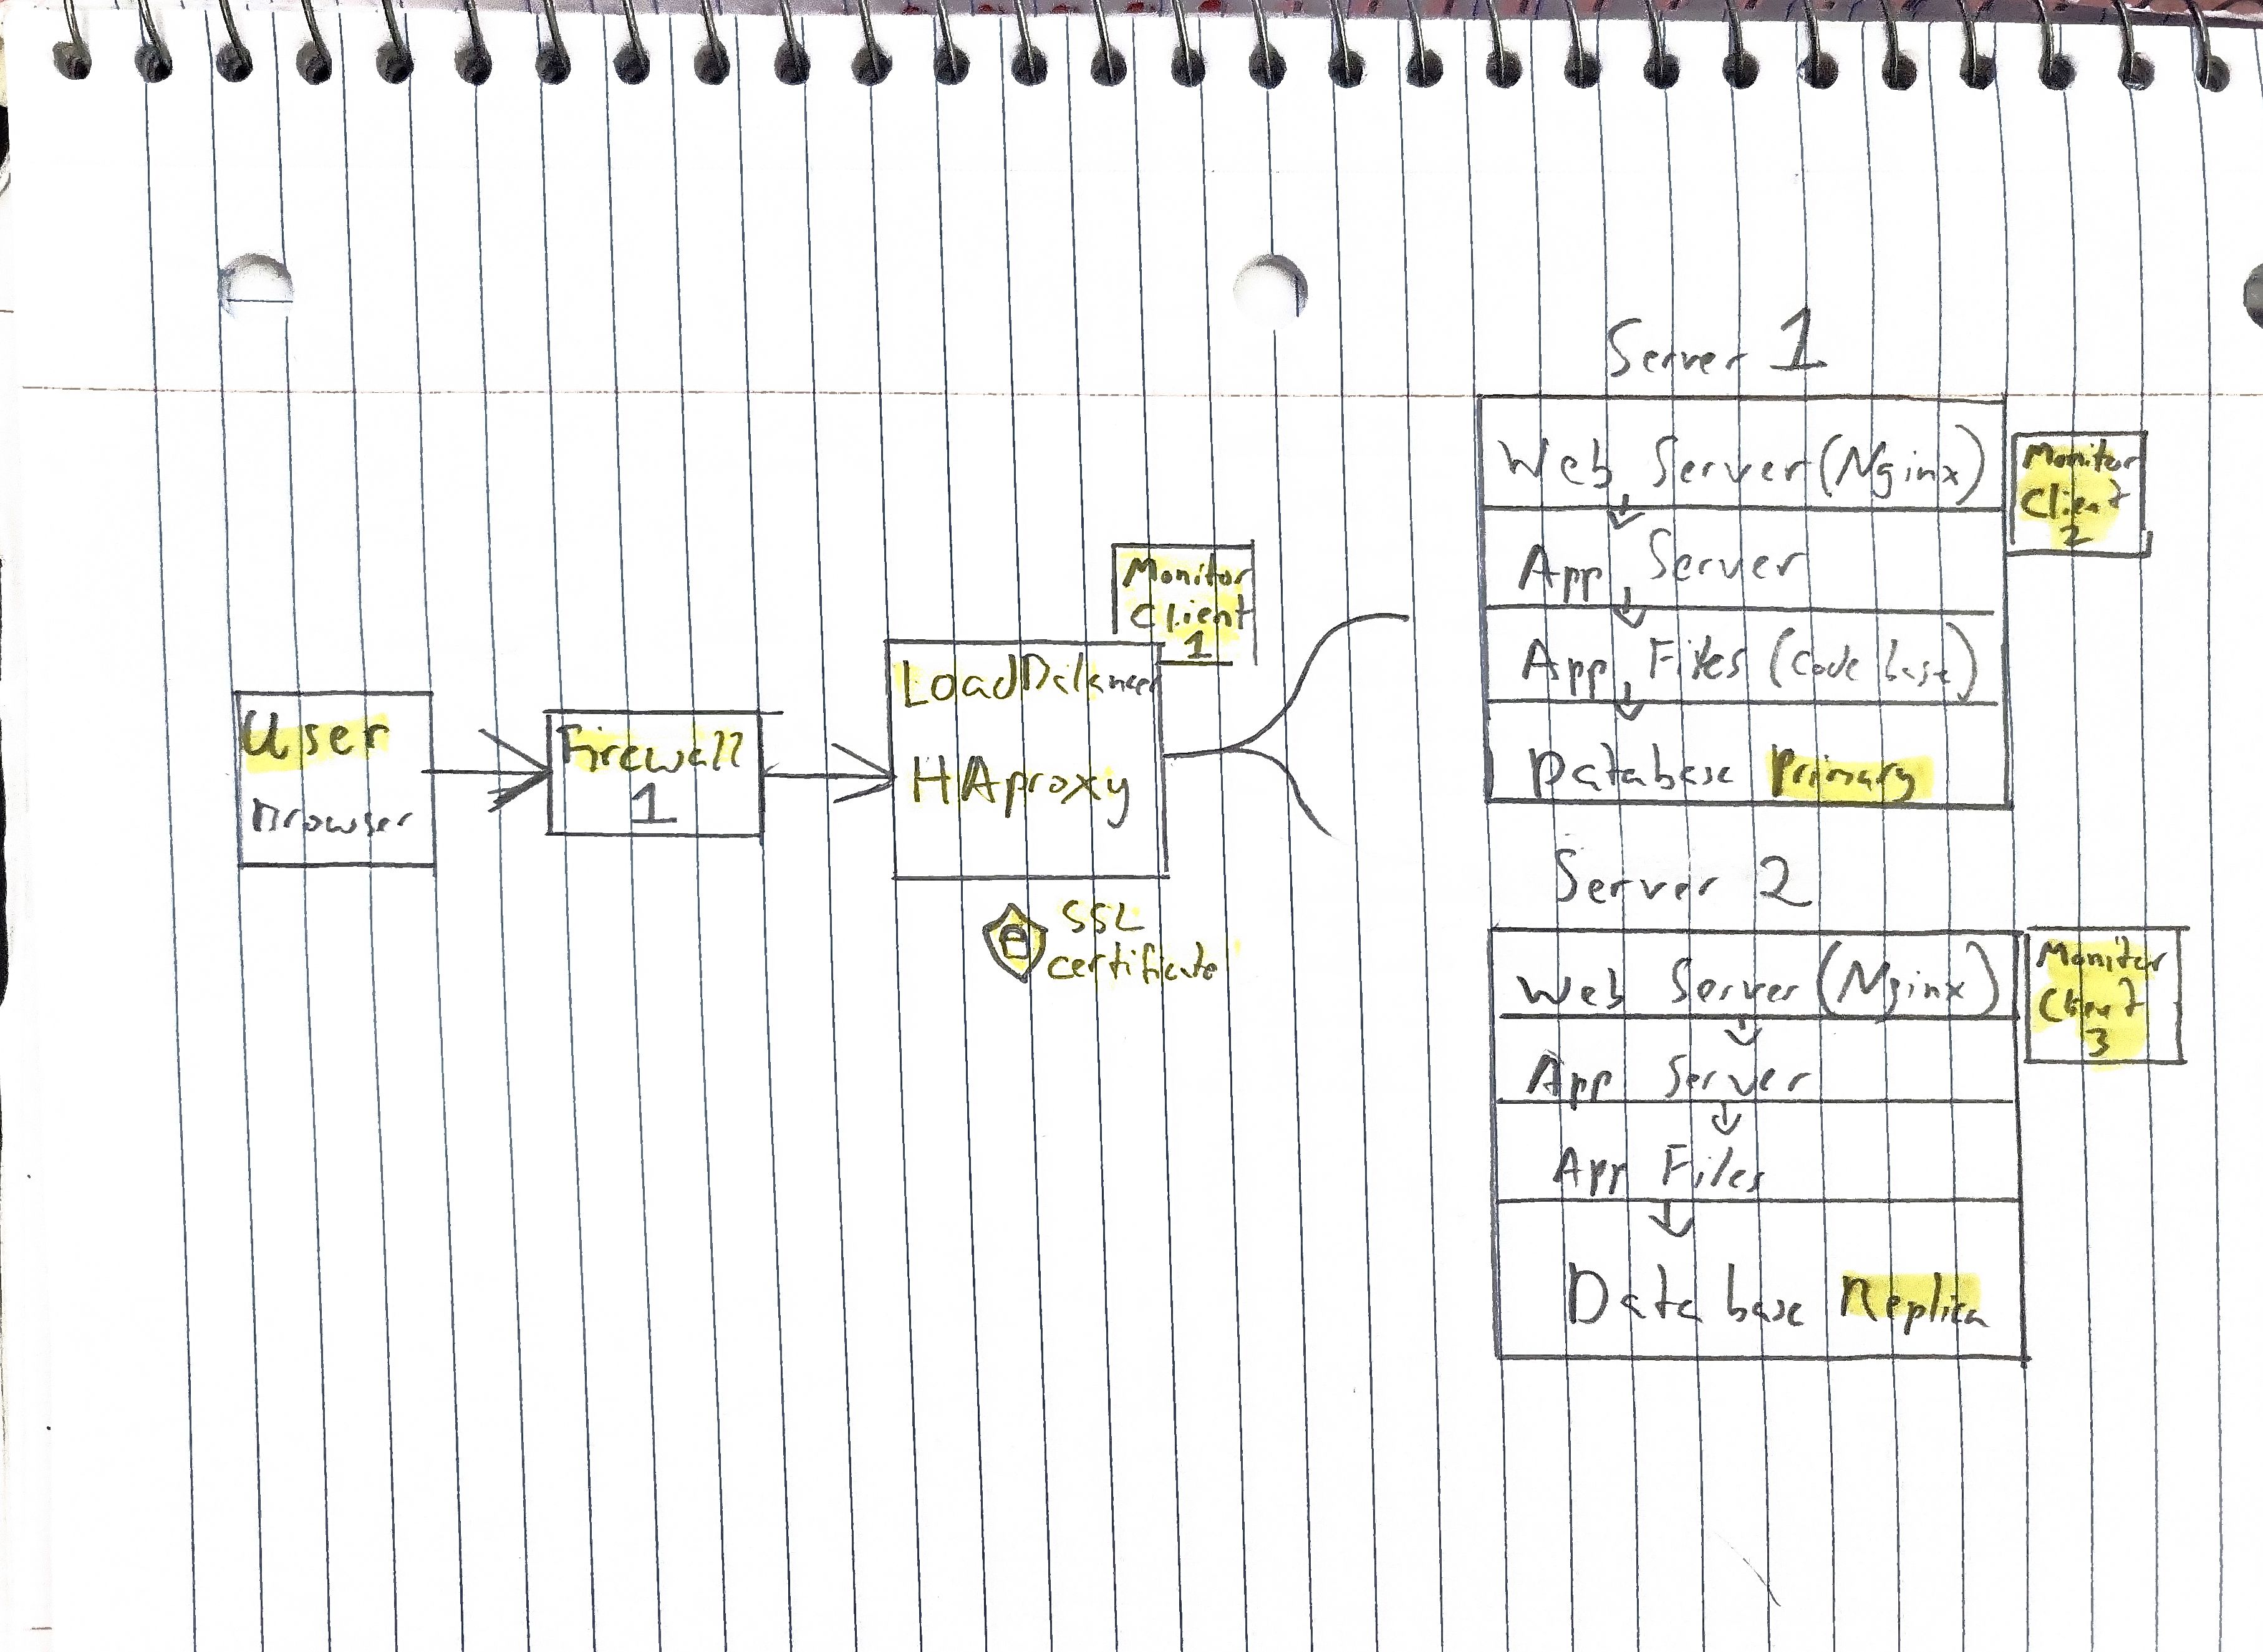 User
Browser
Firewall
1
Monitor
Client
1
LoadBalancer
HAproxy
SSL
certificate
Server 1
Web Server (Nginx)
App Server
App Files (Code base)
Database Primary
Monitor
Client
2
Server 2
Web Server (Nginx)
App Server
App Files
Data base Replica
Monitor
Client
3